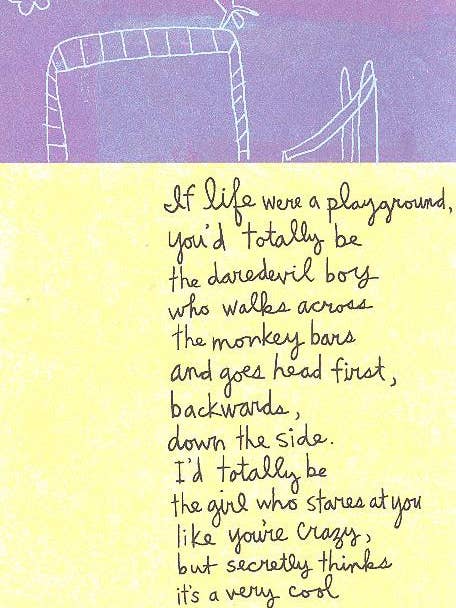 If life were a playground,
you'd totally be
the daredevil boy
who walks across
the monkey bars
and goes head first,
backwards,
down the side.
I'd totally be
the girl who stares at you
like you're crazy,
but secretly thinks
it's a very cool